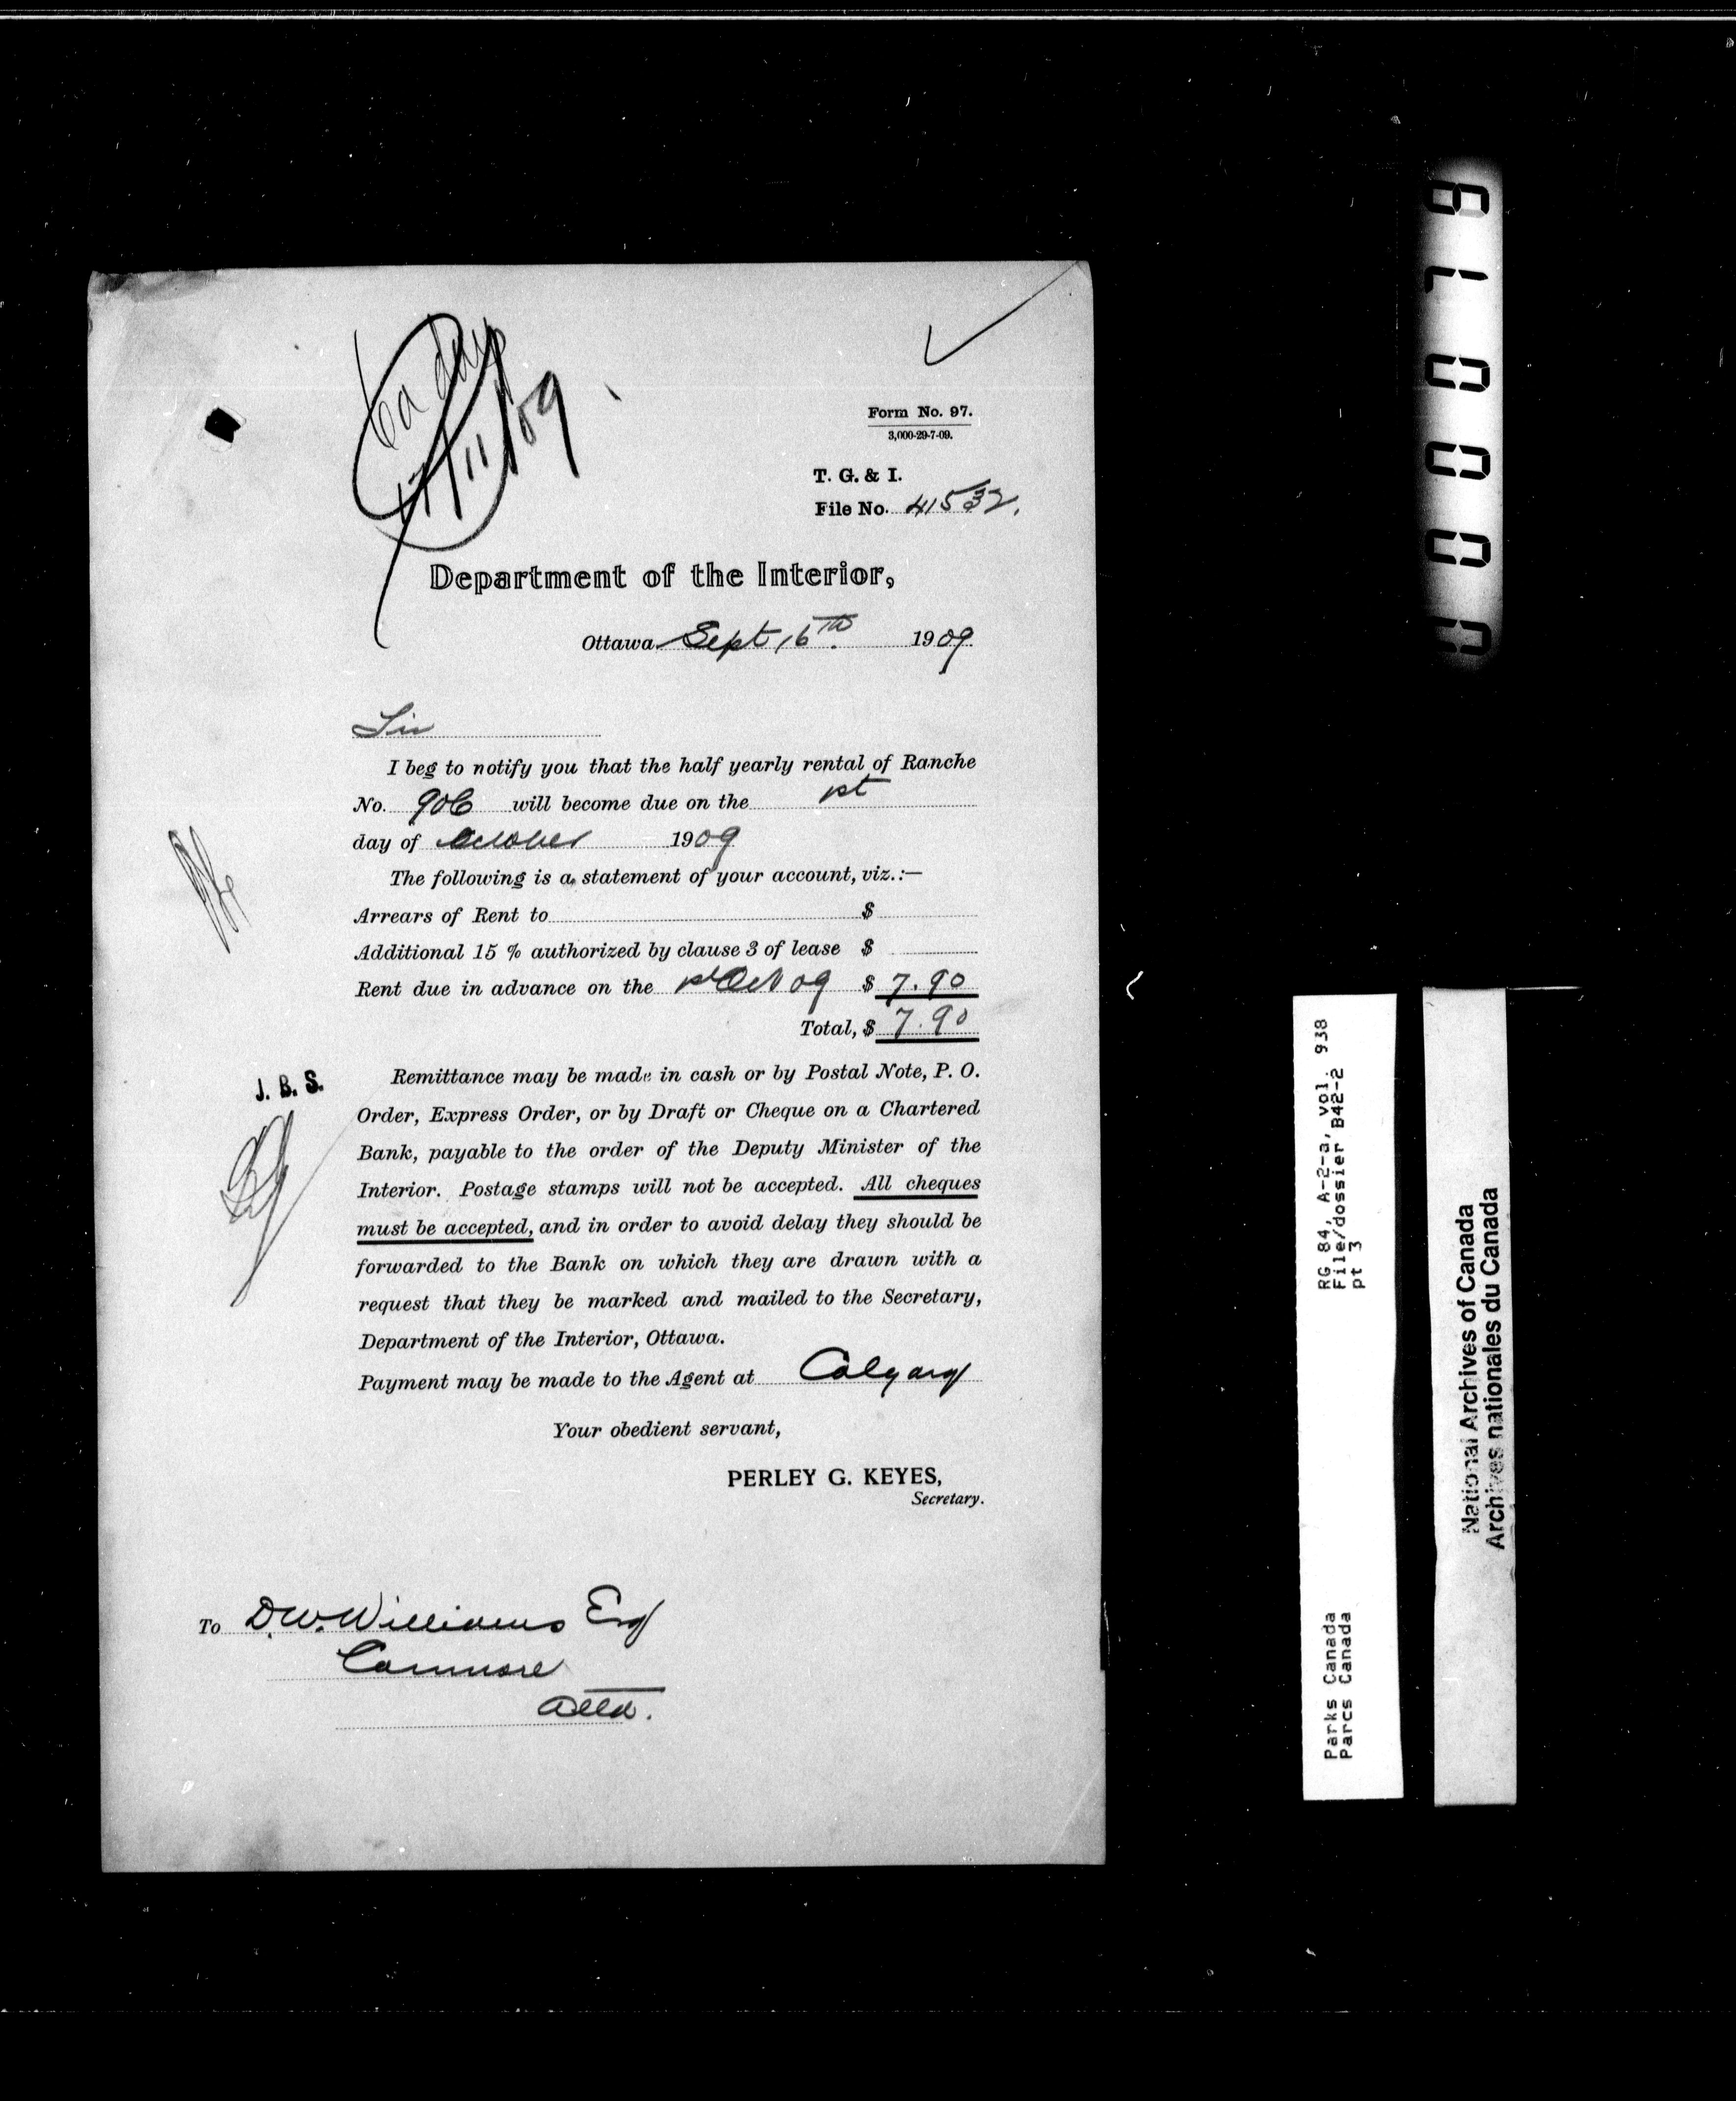 60 days
17/11/09
Form No. 97.
3,000-29-7-09.
T. G. & I.
File No. 41532.
Department of the Interior,
Ottawa Sept 16th. 1909.
Sir
I beg to notify you that the half yearly rental of Ranche
No. 906 will become due on the 1st
day of October 1909
The following is a statement of your account, viz.:—
Arrears of Rent to $
Additional 15 % authorized by clause 3 of lease $
Rent due in advance on the 1st Oct 09 $ 7.90
Total, $ 7.90
J. B. S.
Remittance may be made in cash or by Postal Note, P. O.
Order, Express Order, or by Draft or Cheque on a Chartered
Bank, payable to the order of the Deputy Minister of the
Interior. Postage stamps will not be accepted. All cheques
must be accepted, and in order to avoid delay they should be
forwarded to the Bank on which they are drawn with a
request that they be marked and mailed to the Secretary,
Department of the Interior, Ottawa.
Payment may be made to the Agent at Calgary
Your obedient servant,
PERLEY G. KEYES,
Secretary.
To D.W. Williams Esq
Canmore
Alta.
000079
RG 84, A-2-a, vol. 938
File/dossier B42-2
pt 3
Parks Canada
Parcs Canada
National Archives of Canada
Archives nationales du Canada